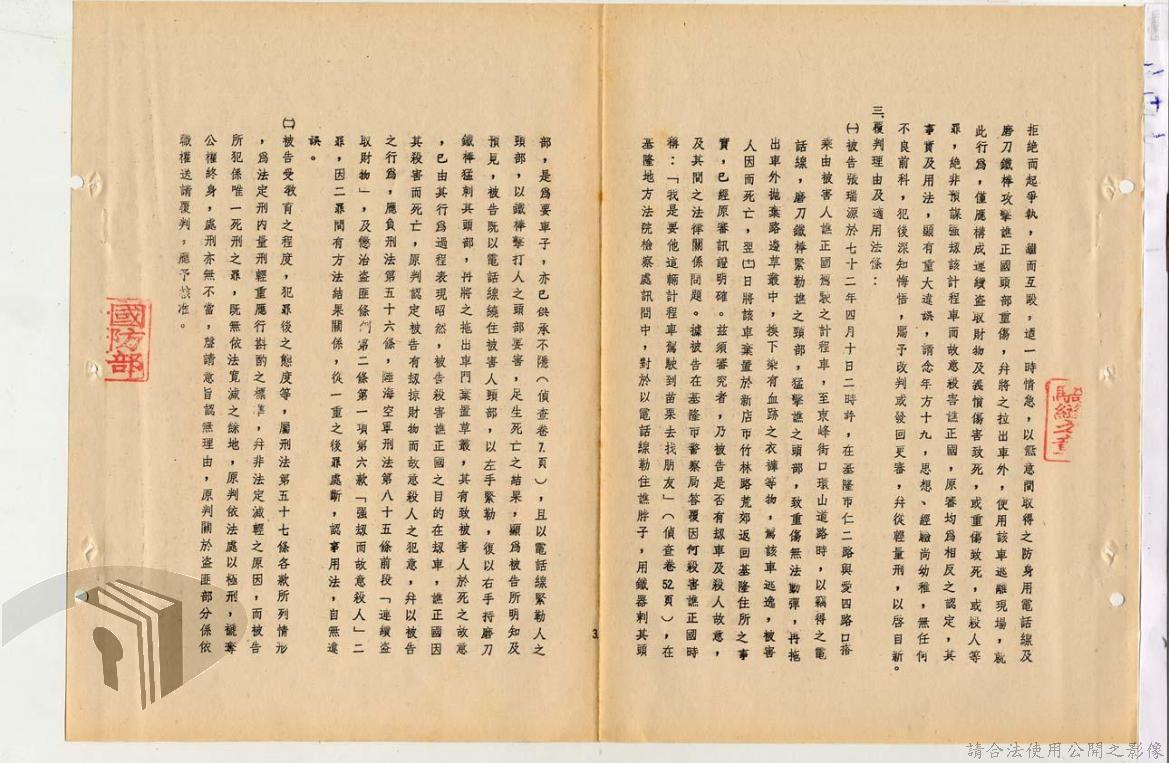 拒絶而起爭執，繼而互毆，適一時情急，以無意間取得之防身用電話線及
磨刀鐵棒攻擊譙正國頭部重傷，幷將之拉出車外，使用該車逃離現場，就
此行為，僅應構成連續盜取財物及義憤傷害致死，或重傷致死，或殺人等
罪，絶非預謀強刼該計程車而故意殺害譙正國，原審均為相反之認定，其
事實及用法，顯有重大違誤，請念年方十九，思想、經驗尚幼稚，無任何
不良前科，犯後深知悔悟，賜予改判或發回更審，幷從輕量刑，以啓自新。
三、覆判理由及適用法條：
㈠被告張瑞源於七十二年四月十日二時許，在基隆市仁二路與愛四路口搭
乘由被害人譙正國駕駛之計程車，至東峰街口環山道路時，以竊得之電
話線，磨刀鐵棒緊勒譙之頸部，猛擊譙之頭部，致重傷無法動彈，再拖
出車外拋棄路邊草叢中，換下染有血跡之衣褲等物，駕該車逃逸，被害
人因而死亡，翌㈩日將該車棄置於新店市竹林路荒郊返回基隆住所之事
實，已經原審訊證明確。茲須審究者，乃被告是否有刼車及殺人故意，
及其間之法律關係問題。據被告在基隆市警察局答覆因何殺害譙正國時
稱：「我是要他這輛計程車駕駛到苗栗去找朋友」（偵查卷52頁），在
基隆地方法院檢察處訊問中，對於以電話線勒住譙脖子，用鐵器刺其頭
3
部，是為要車子，亦已供承不隱（偵查卷7.頁），且以電話線緊勒人之
頸部，以鐵棒擊打人之頭部要害，足生死亡之結果，顯為被告所明知及
預見，被告既以電話線繞住被害人頸部，以左手緊勒，復以右手持磨刀
鐵棒猛刺其頭部，再將之拖出車門棄置草叢，其有致被害人於死之故意
，已由其行為過程表現昭然，被告殺害譙正國之目的在刼車，譙正國因
其殺害而死亡，原判認定被告有刼掠財物而故意殺人之犯意，幷以被告
之行為，應負刑法第五十六條，陸海空軍刑法第八十五條前段「連續盜
取財物」，及懲治盜匪條例第二條第一項第六款「強刼而故意殺人」二
罪，因二罪間有方法結果關係，從一重之後罪處斷，認事用法，自無違
誤。
㈡被告受教育之程度，犯罪後之態度等，屬刑法第五十七條各款所列情形
，為法定刑內量刑輕重應行斟酌之標準，幷非法定減輕之原因，而被告
所犯係唯一死刑之罪，既無依法寬減之餘地，原判依法處以極刑，褫奪
公權終身，處刑亦無不當，聲請意旨認無理由，原判關於盜匪部分係依
職權送請覆判，應予核准。
國防部
請合法使用公開之影像